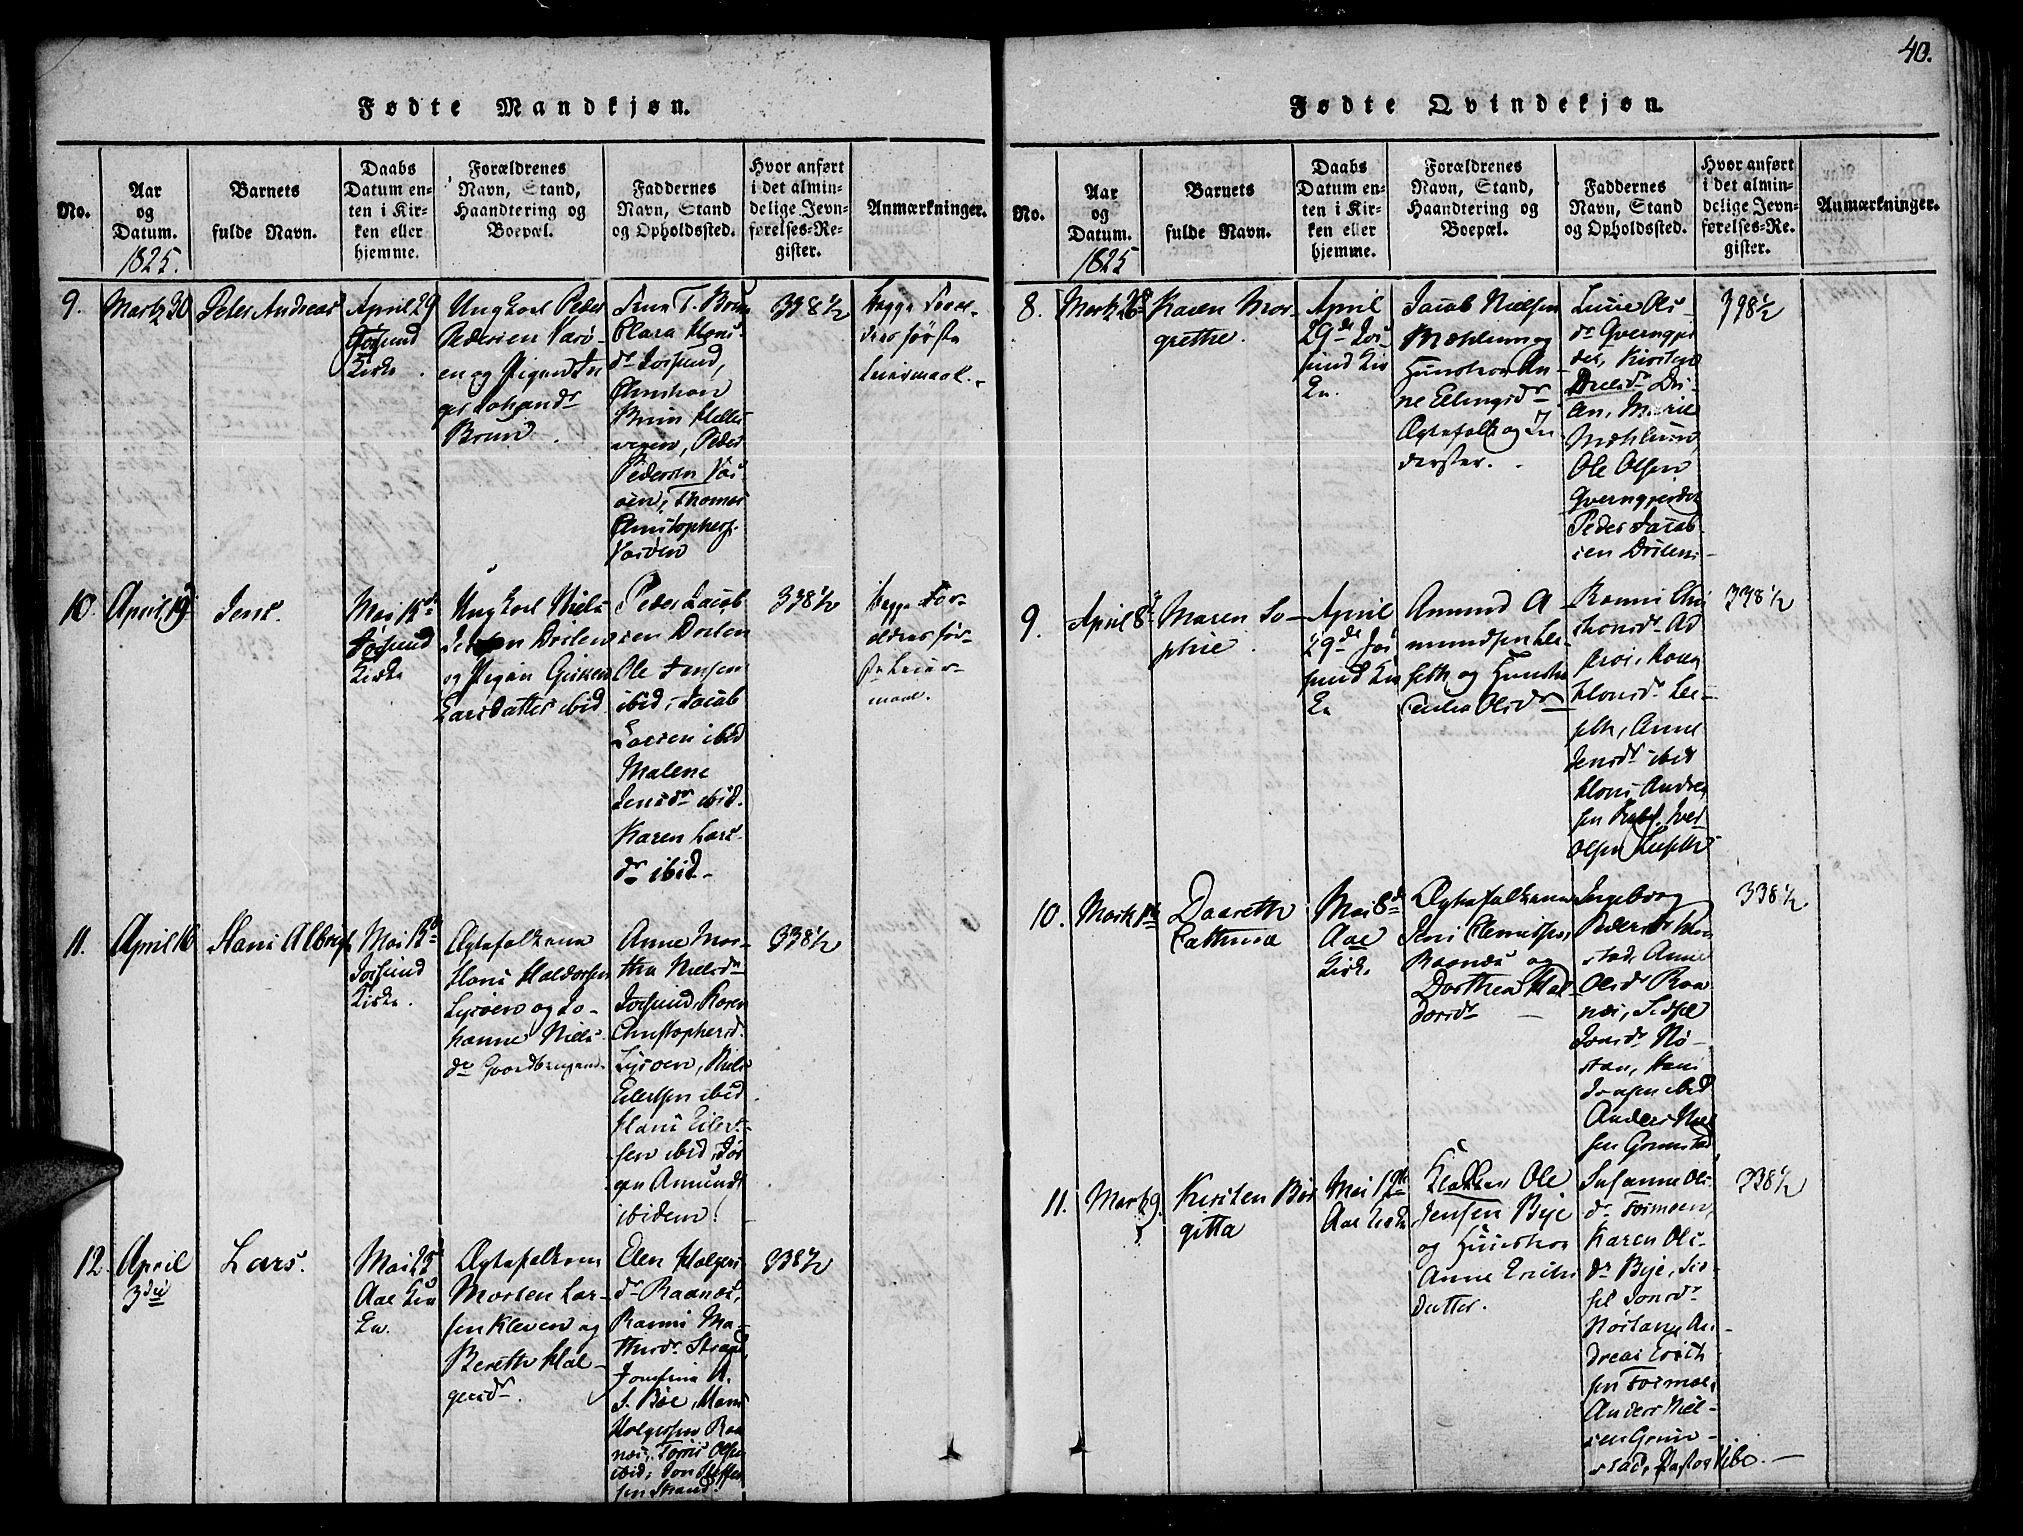 40.
Fødte Mandkjøn.
No.
Aar
og
Datum.
1825.
Barnets
fulde Navn.
Daabs
Datum en-
ten i Kir-
ken eller
hjemme.
Forældrenes
Navn, Stand,
Haandtering og
Boepæl.
Faddernes
Navn, Stand
og Opholdssted.
Hvor anført
i det almin-
delige Jevn-
førelses-Re-
gister.
Anmærkninger.
9.
Martz 30
Peter Andreas
April 29
Josund
Kirke
Ungkarl Peder
Pedersen Varø-
en og Pigen In
ger Johansdr
Bruun
T. Bruun
Clara Hans-
dr Josund,
Christian
Bruun
Peder
Pedersen Var
øen, Thomas
Christophers.
Varøen
338½
Begge Foræl-
dres første
Leiermaal.
10.
April 19
Jens.
Mai 12te
Josund
Kirke
Ungkarl Niels
Jensen Drilen
og Pigen
Larsdatter ibid
Peder Jacob
sen Dorlen
Ole Jensen
ibid, Jacob
Larsen ibid
Malene
Jensdr ibid.
Karen Lars-
dr ibid.
338½
Begge For-
ældres før-
ste Leier-
maal.
11.
April 16
Hans Albregt
Mai 12te
Josund
Kirke.
Ægtefolkene
Hans Haldorsen
Lysøen og Jo-
hanne Niels-
dr Gaardbrugende
Anne Mar-
tha Nielsdr
Josund, Karen
Christophersdr
Lysøen, Niels
Eilertsen ibid
Hans Eilert-
sen ibid, Jør-
gen Amunds
ibidem.
338½
12.
April
3die
Lars.
Mai 25
Aae Kir
ke.
Ægtefolkene
Morten Lar-
sen Kleven og
Bereth Hol-
gersdr.
Elen Holgers
dr Raanes,
Ranni Ma-
thisdr Strand,
Josefina A.
S. Bøe, Hans
Holgersen Raa
nes, Tørris Olsen
ibid, Jon Steffen
sen Strand.
338½
Fødte Qvindekjøn.
No.
Aar
og
Datum.
1825
Barnets
fulde Navn.
Daabs
Datum en-
ten i Kir-
ken eller
hjemme.
Forældrenes
Navn, Stand,
Haandtering og
Boepæl.
Faddernes
Navn, Stand
og Opholdssted.
Hvor anført
i det almin-
delige Jevn-
førelses-Re-
gister.
Anmærkninger.
8.
Martz 26
Karen Mar-
grethe.
April
29de Jos-
sund Kir
ke.
Jacob Nielsen
Mæhlum og
Hunstroe An-
ne Ellingsdr
Ægtefolk og In
derster.
Lucie Ols-
dr Qverngjer
det, Kirsten
Drilen,
Marie
Mæhlum,
Ole Olsen
Qverngjerdet
Peder Jacob-
sen Drilen
338½
9.
April 8
Maren So-
phie.
April
29de Jos
sund Kir
ke
Amund A-
mundsen Le-
seth og Hunstroe
Olsdr
Ranni Chri
stensdr
Hansdr Le-
seth, Anne
Jensdr ibid
Hans Andrea
sen
Olsen Leseth
338½
10.
Martz
Daareth
Cathrina
Mai 8de
Aae
Kirke
Ægtefolkene
Jens Clemetsen
Raanes og
Dorthea Hal-
dorsdr
Ingeborg
Pedersdr
stad, Anne
Olsdr Raa
nes, Sidsel
Jonsdr Nø-
stan, Hans
ibid
Anders Niel
sen Grønstad
338½
11.
Martz 9.
Kirsten Bir
gitta
Mai
Aae Kirke
Klokker Ole
Jensen Bye
og Hunstroe
Anne Erichs
datter.
Susanne Ols
dr Formoen,
Karen Ols-
dr Bye, Sid-
sel Jonsdr
Nøstan, An-
dreas Erich
sen Formoe,
Anders Niel-
sen Grøn-
stad, Pastor Kibo.
338½